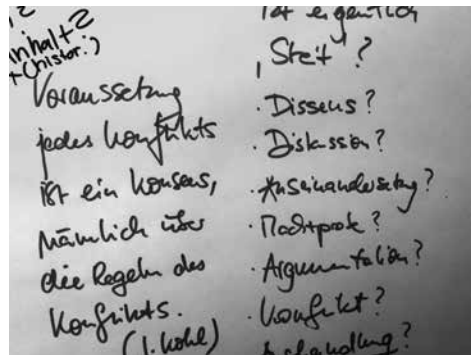 inhalt?
Voraussetzung
jedes Konflikts
ist ein Konsens,
nämlich über
die Regeln des
Konflikts.
(I. Kohl)
ist eigentlich
"Streit"?
· Dissens?
· Diskussion?
· Auseinandersetzung?
· Machtprobe?
· Argumentation?
· Konflikt?